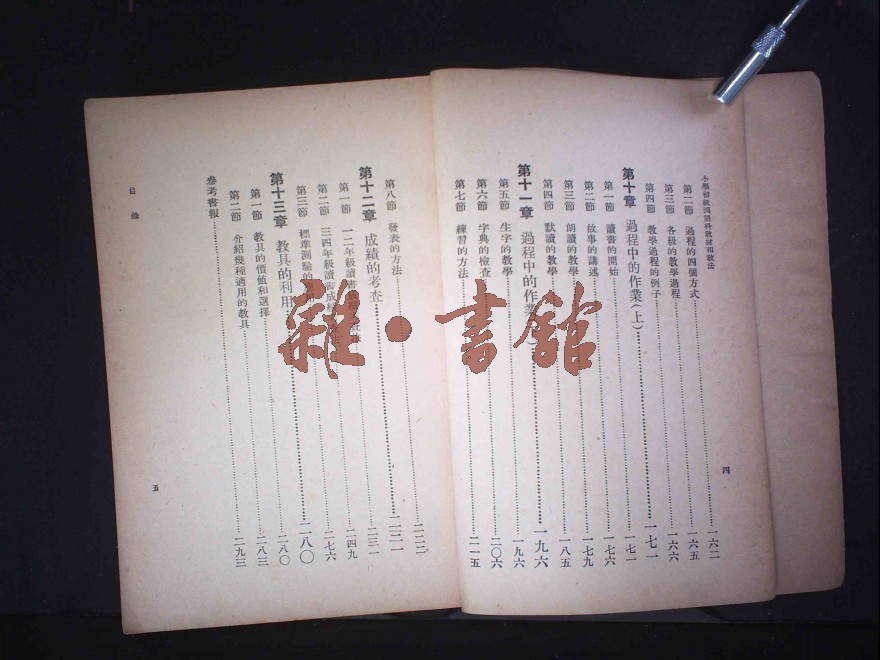 小學初級國語科教材和教法
第二節 過程的四個方式……一六二
第三節 各級的教學過程……一六五
第四節 教學過程的例子……一六六
第十章 過程中的作業（上）……一七一
第一節 讀書的開始……一七一
第二節 故事的講述……一七六
第三節 朗讀的教學……一七九
第四節 默讀的教學……一八五
第十一章 過程中的作業……一九六
第五節 生字的教學……一九六
第六節 字典的檢查……二〇六
第七節 練習的方法……二一五
四
第八節 發表的方法……二二二
第十二章 成績的考查……二三一
第一節 一二年級讀書成績……二三一
第二節 三四年級讀書成績……二四九
第三節 標準測驗的……二七六
第十三章 教具的利用……二八〇
第一節 教具的價值和選擇……二八〇
第二節 介紹幾種適用的教具……二八三
參考書報……二九三
目錄
五
雜·書館